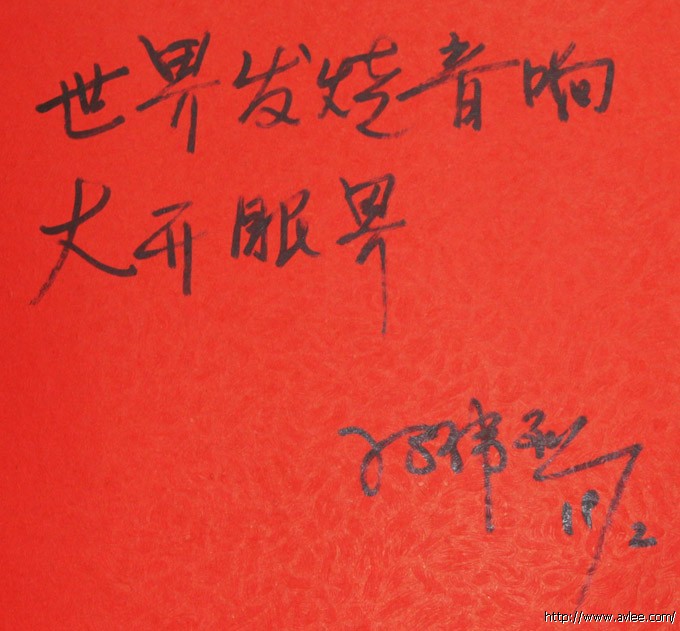 世界发烧音响
大开眼界
19/2
http://www.avlee.com/